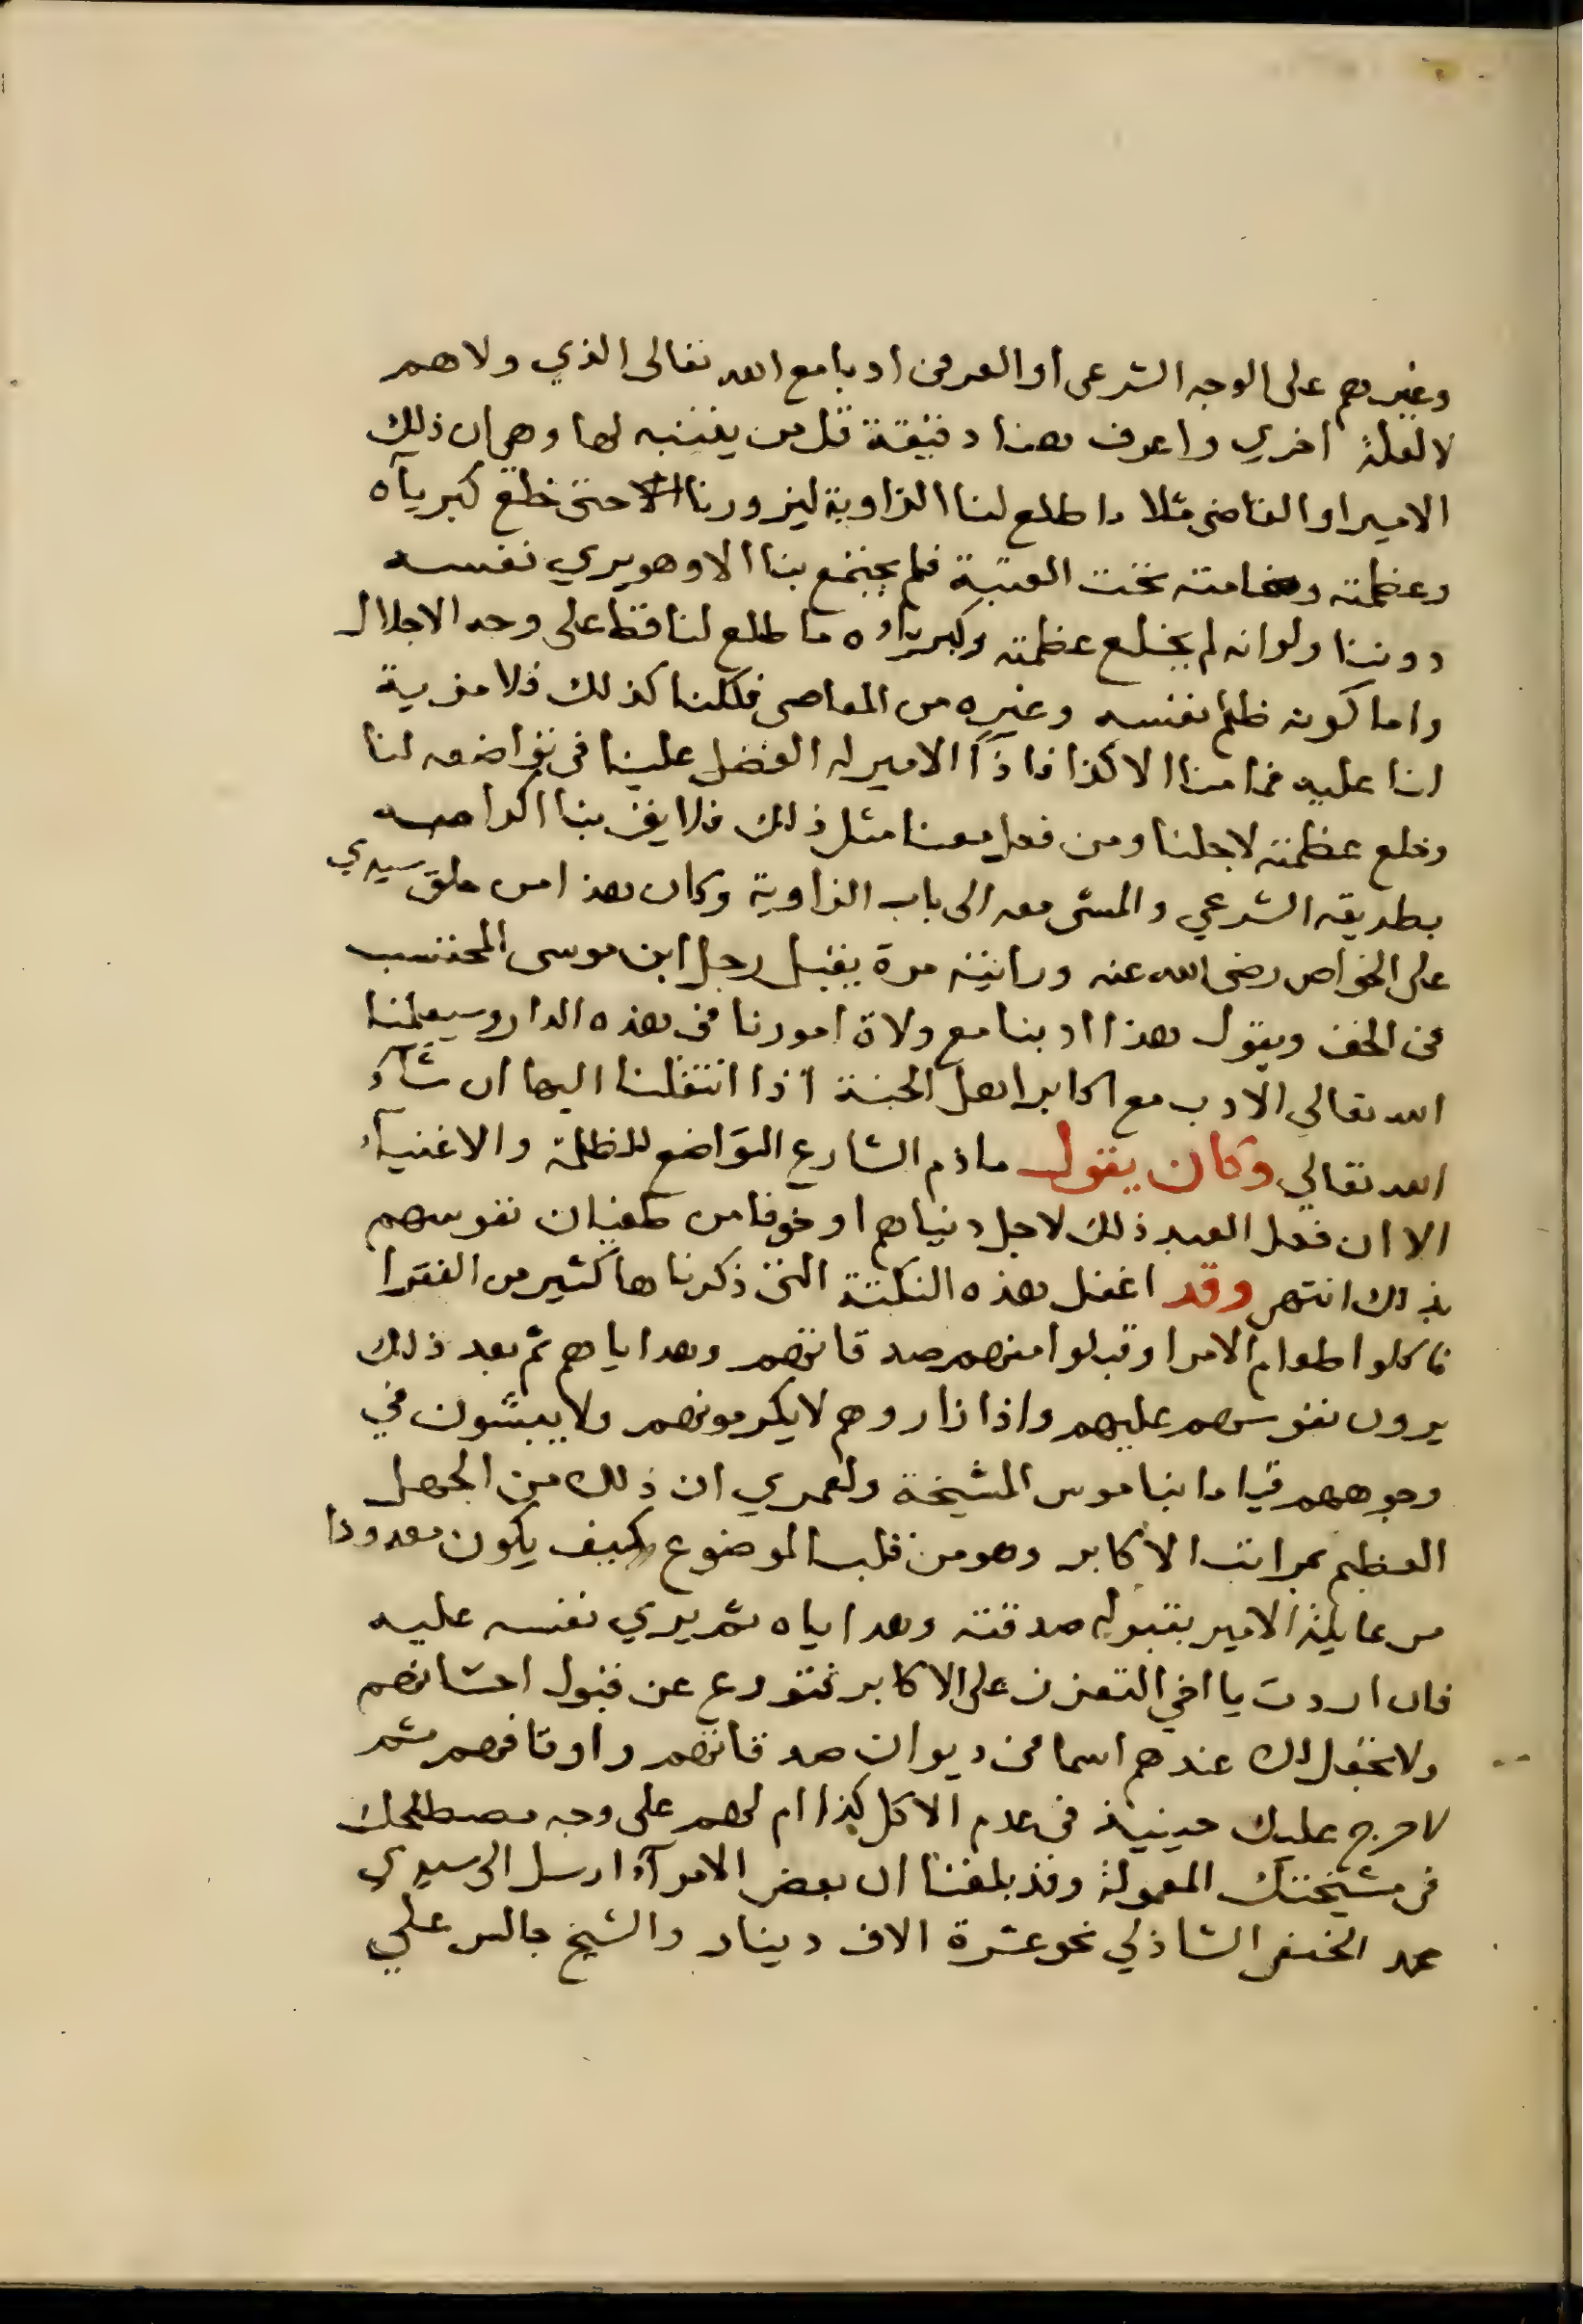 وغيرهم على الوجه الشرعى او العرفى ادبا مع الله تعالى الذي ولاهم
لا لعلة اخري واعرف هنا دقيقة قل من يتنبه لها وهى ان ذلك
الامير او القاضى مثلا ما طلع لنا الزاوية ليزورنا الا حتى خلع كبرياه
وعظمته وفخامته تحت العتبة فلم يجتمع بنا الا وهو يري نفسه
دوننا ولو انه لم يخلع عظمته وكبرياوه ما طلع لنا قط على وجه الاجلال
واما كونه ظلم نفسه وغيره من المعاصى فكلنا كذلك فلا مزية
لنا عليه فما منا الا كذا فاذا الامير له الفضل علينا فى تواضعه لنا
وخلع عظمته لاجلنا ومن فعل معنا مثل ذلك فلا يفى بنا اكرامه
بطريقه الشرعي والمشى معه الى باب الزاوية وكان هذا من خلق سيدي
على الخواص رضى الله عنه ورايته مرة يقبل رجل ابن موسى المحتسب
فى الخف ويقول هذا ادبنا مع ولاة امورنا فى هذه الدار وسيعلمنا
الله تعالي الادب مع اكابر اهل الجنة اذا انتقلنا اليها ان شآء
الله تعالي وكان يقول ما ذم الشارع التواضع للظلمة والاغنيآء
الا ان فعل العبد ذلك لاجل دنياهم او خوفا من طغيان نفوسهم
بذلك انتهى وقد اغفل هذه النكتة التى ذكرناها كثير من الفقرا
فاكلوا طعام الامرا وقبلوا منهم صدقاتهم وهداياهم ثم بعد ذلك
يرون نفوسهم عليهم واذا زاروهم لا يكرمونهم ولا يبشون في
وجوههم قياما بناموس المشيخة ولعمري ان ذلك من الجهل
العظيم بمراتب الاكابر وهو من قلب الموضوع وكيف يكون معدودا
من عايلة الامير بقبوله صدقته وهداياه ثم يري نفسه عليه
فان اردت يا اخي التعزز على الاكابر فتورع عن قبول احسانهم
ولا تجعل لك عندهم اسما فى ديوان صدقاتهم واوقافهم ثم
لا حرج عليك حينيذ فى عدم الاكل كذا ام لهم على وجه مصطلحك
فى مشيختك المعمولة وقد بلغنا ان بعض الامرآء ارسل الى سيدي
محمد الحنفى الشاذلي نحو عشرة الاف دينار والشيخ جالس علي